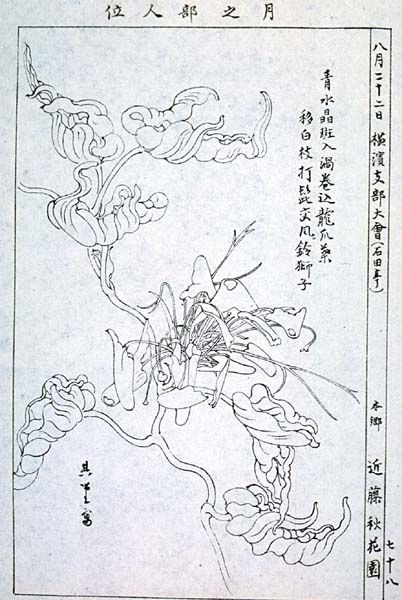 月之部人位
八月二十二日 横濱支部大會(石田亭)
本郷 近藤秋花園
七十八
青水晶斑入渦巻込龍爪葉
移白枝打髭交風鈴獅子
寫